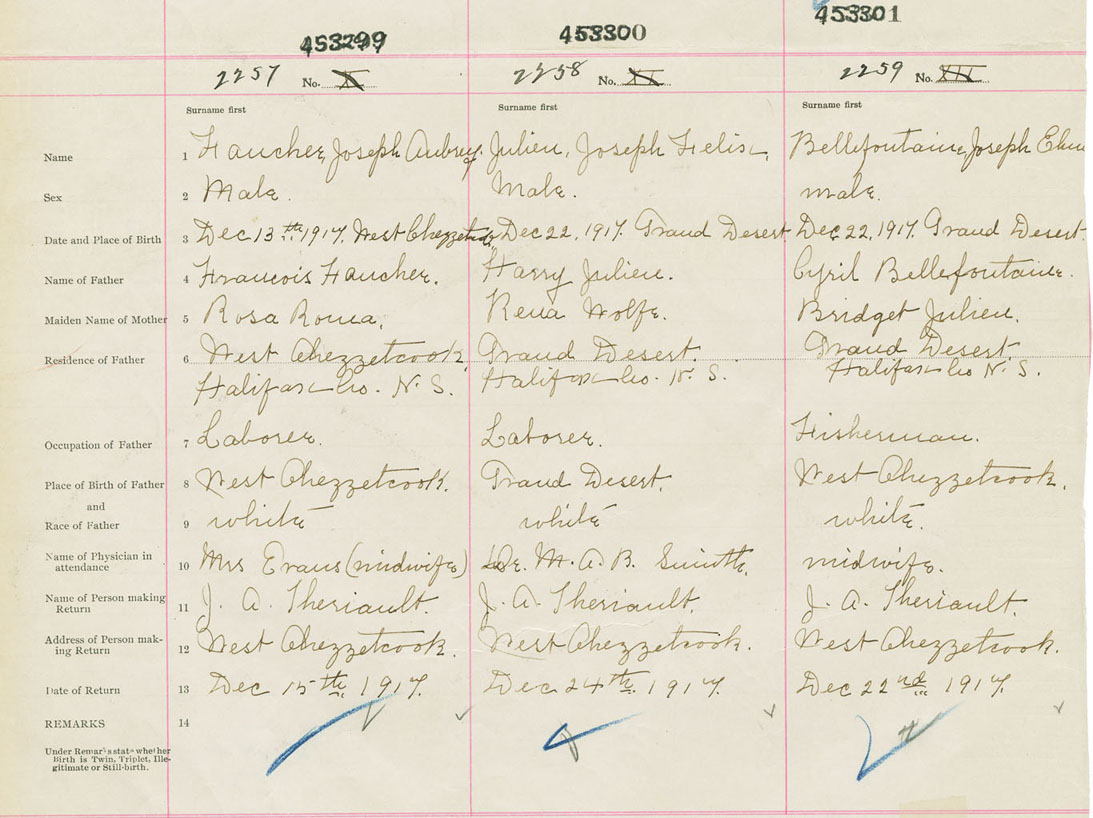 453299 453300 453301
2257 No. X 2258 No. XI 2259 No. XII
Surname first Surname first Surname first
Name 1 Faucher, Joseph Aubrey. Julien, Joseph Felix. Bellefontaine, Joseph
Sex 2 Male. Male. male.
Date and Place of Birth 3 Dec 13th 1917. West Chezzetcook Dec 22, 1917. Grand Desert Dec 22, 1917. Grand Desert.
Name of Father 4 Francois Faucher. Harry Julien. Cyril Bellefontaine.
Maiden Name of Mother 5 Rosa Roma. Rena Wolfe. Bridget Julien.
Residence of Father 6 West Chezzetcook, Grand Desert. Grand Desert.
Halifax Co. N. S. Halifax Co. N. S. Halifax Co N. S.
Occupation of Father 7 Laborer. Laborer. Fisherman.
Place of Birth of Father 8 West Chezzetcook. Grand Desert. West Chezzetcook.
and
Race of Father 9 white white white.
Name of Physician in
attendance 10 Mrs Evans (midwife) Dr. M. A. B. Smith. midwife.
Name of Person making
Return 11 J. A. Theriault. J. A. Theriault. J. A. Theriault.
Address of Person mak-
ing Return 12 West Chezzetcook. West Chezzetcook. West Chezzetcook.
Date of Return 13 Dec 15th, 1917. Dec 24th, 1917. Dec 22nd 1917.
REMARKS 14
Under Remarks state whether
Birth is Twin, Triplet, Ille-
gitimate or Still-birth.